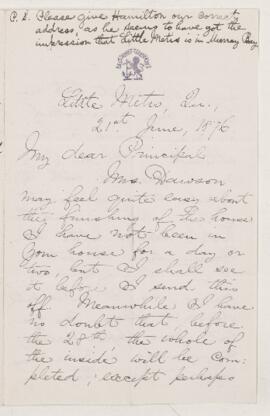 P. S. Please give Hamilton our correct
address, as he seems to have got the
impression that Little Metis is in Murray Bay
Little Metis, Qu.,
21st June, 1876
My dear Principal
Mrs. Dawson
may feel quite easy about
the finishing of the house
I have not been in
your house for a day or
two but I shall see
it before I send this
off. Meanwhile I have
no doubt that, before
the 28th, the whole of
the inside will be com-
pleted; except perhaps